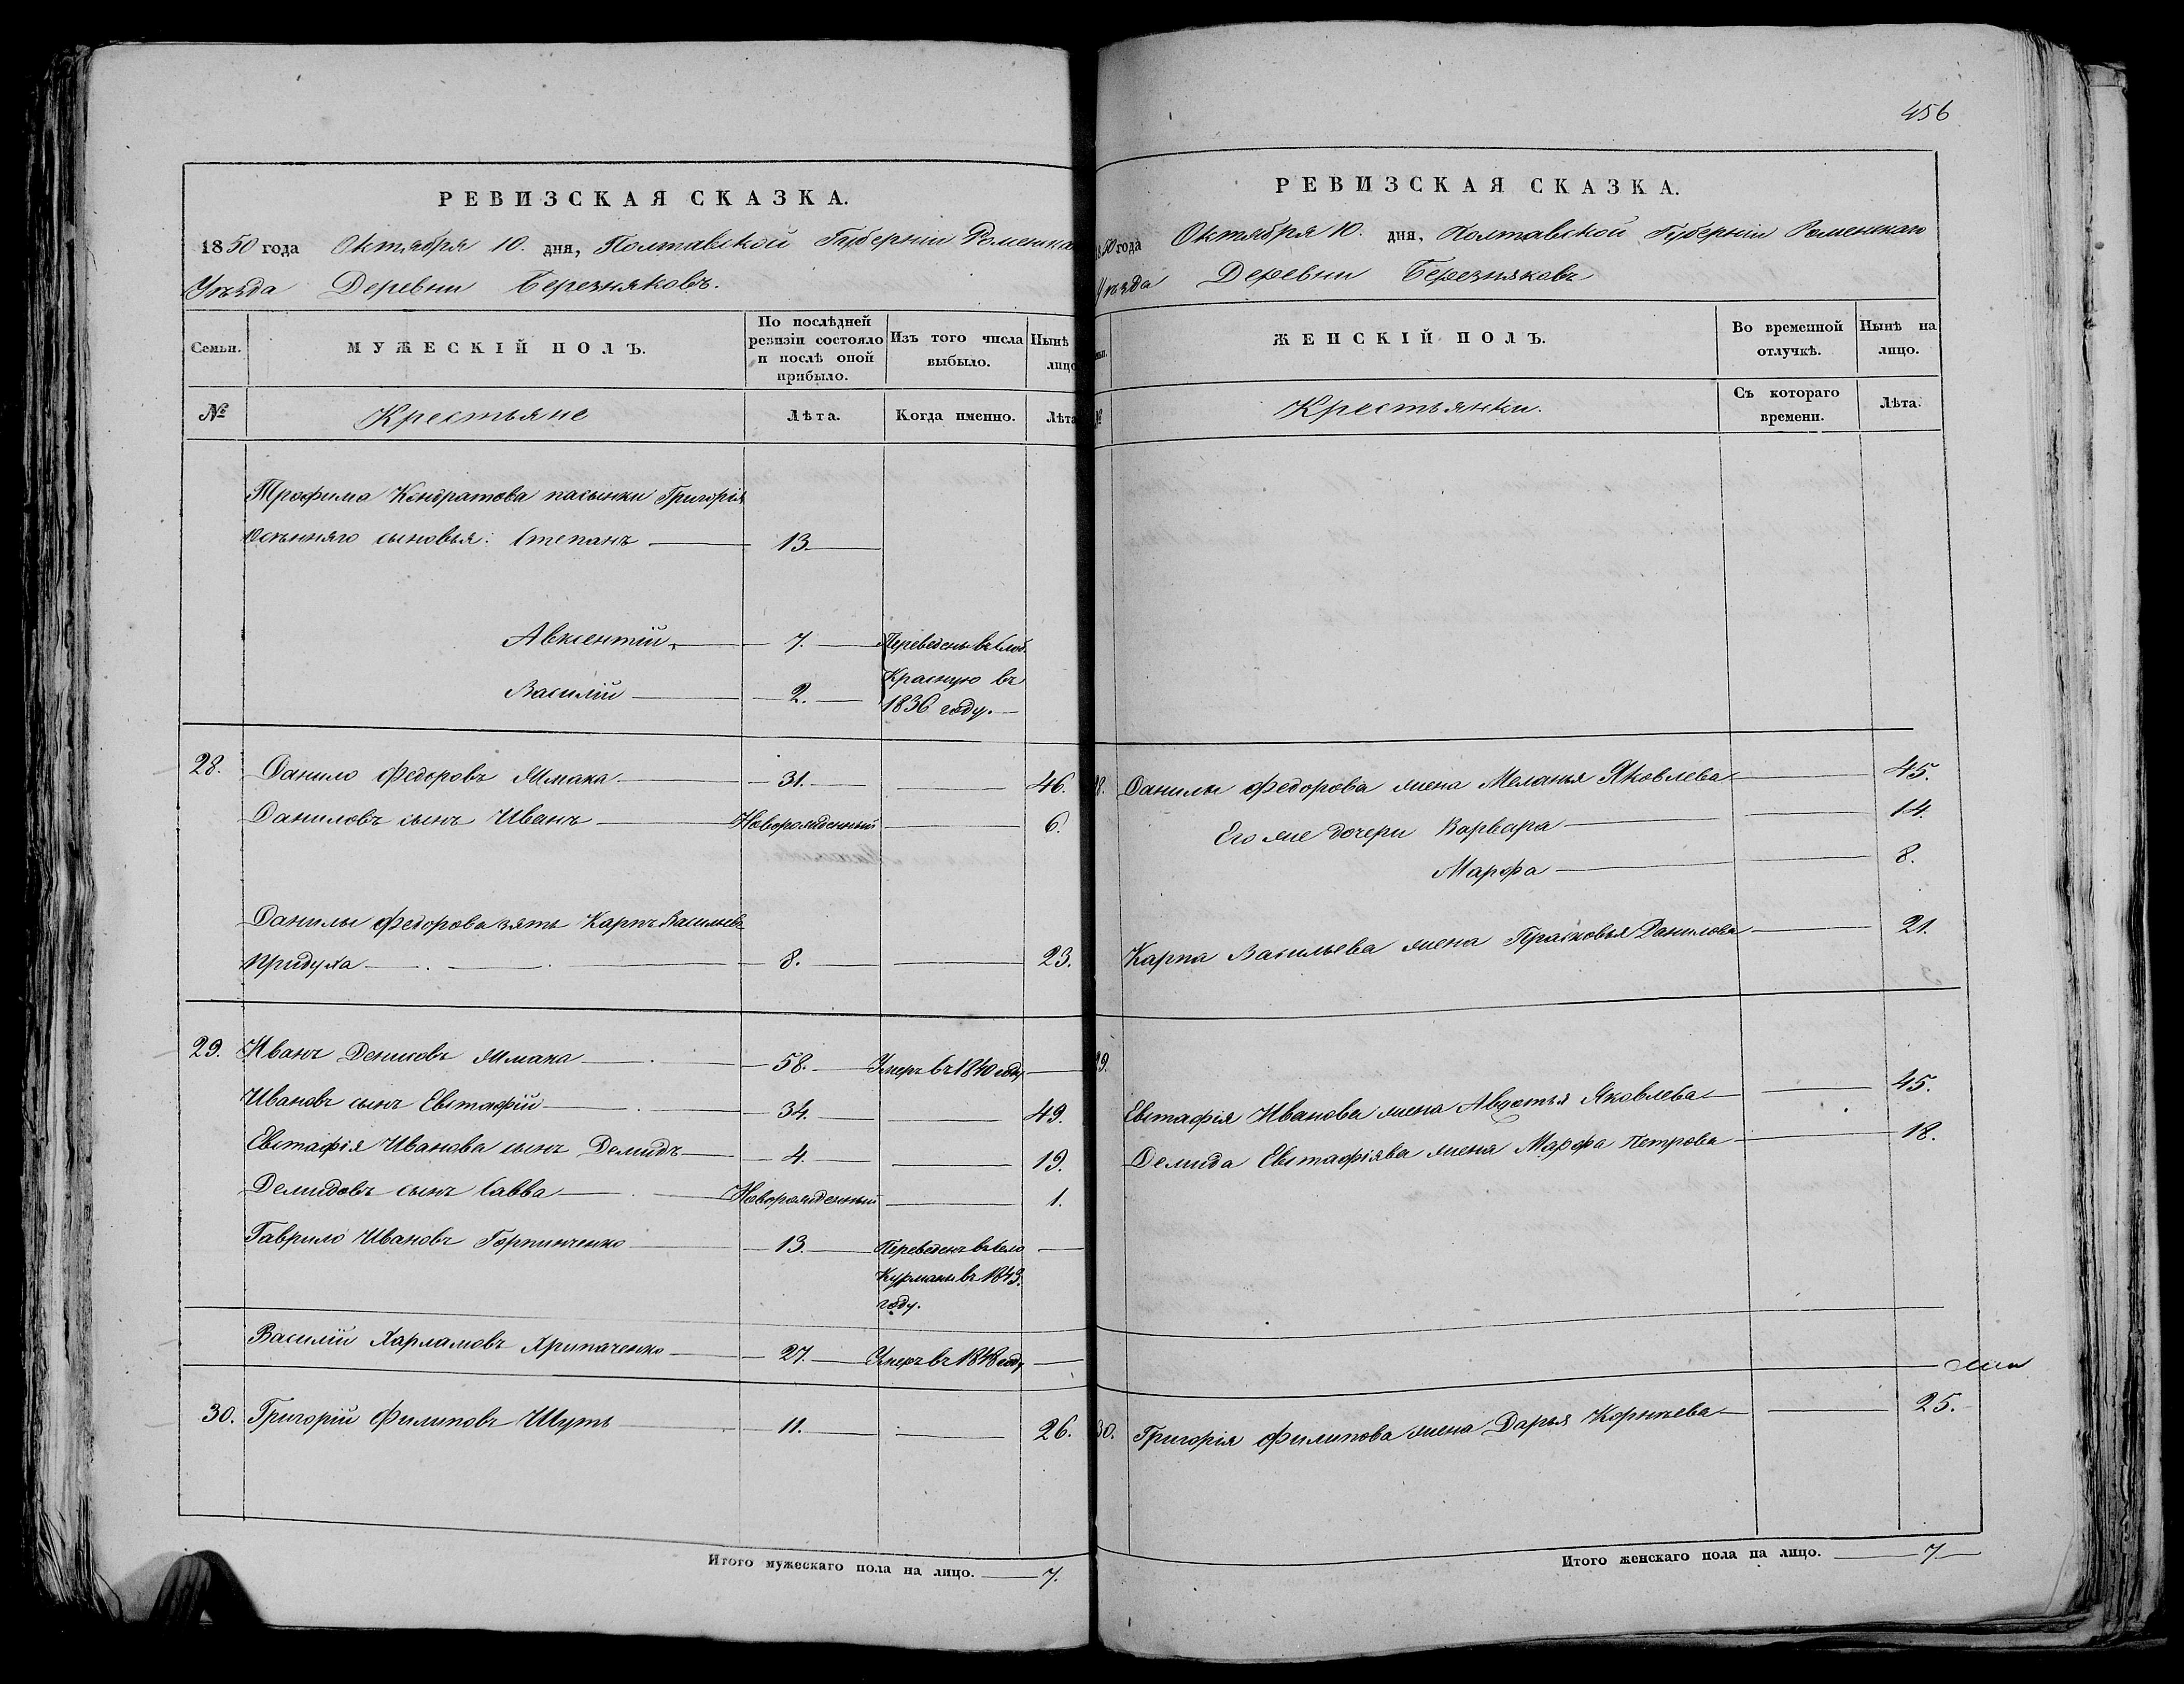 РЕВИЗСКАЯ СКАЗКА.
1850 года Октября 10. дня, Полтавской Губерніи Роменска
Уѣзда Деревни Березняковъ.
Семьи.
МУЖЕСКІЙ ПОЛЪ.
По послѣдней
ревизіи состояло
и послѣ оной
прибыло.
Изъ того числа
выбыло.
Нынѣ
лицо
№
Крестьяне
Лѣта.
Когда именно.
Лѣта
Трофима Кондратова пасынки Григорія
сыновья: Степанъ 13.
Авксентій 7. Переведены въ Слоб.
Василій 2. Красную въ
1836 году.
28. Данило Федоровъ 31. 46.
Даниловъ сынъ Иванъ Новорожденный 6.
Данилы Федорова зять Карпъ Васильевъ
Придуха 8. 23.
29. Иванъ Денисовъ 58. Умеръ въ 1840 году
Ивановъ сынъ Евстафій 34. 49.
Евстафія Иванова сынъ Демидъ 4. 19.
Демидовъ сынъ Савва Новорожденный 1.
Гаврило Ивановъ Горпинченко 13. Переведенъ въ село
Курманы въ 1849.
году.
Василій Харламовъ Хрипаченко 27. Умеръ въ 1848 году
30. Григорій Филиповъ Шуть 11. 26.
Итого мужескаго пола на лицо. 7.
456
РЕВИЗСКАЯ СКАЗКА.
50 года Октября 10. дня, Полтавской Губерніи Роменскаго
Уѣзда Деревни Березняковъ
ЖЕНСКІЙ ПОЛЪ.
Во временной
отлучкѣ.
Нынѣ на
лицо.
№
Крестьянки.
Съ котораго
времени.
Лѣта.
8. Данилы Федорова жена Меланья Яковлева 45.
Его же дочери Варвара 14.
Марфа 8.
Карпа Васильева жена Парасковья Данилова 21.
29.
Евстафія Иванова жена Авдотья Яковлева 45.
Демида Евстафіява жена Марфа Петрова 18.
30. Григорія Филипова жена Дарья Корнѣева 25.
Итого женскаго пола на лицо. 7